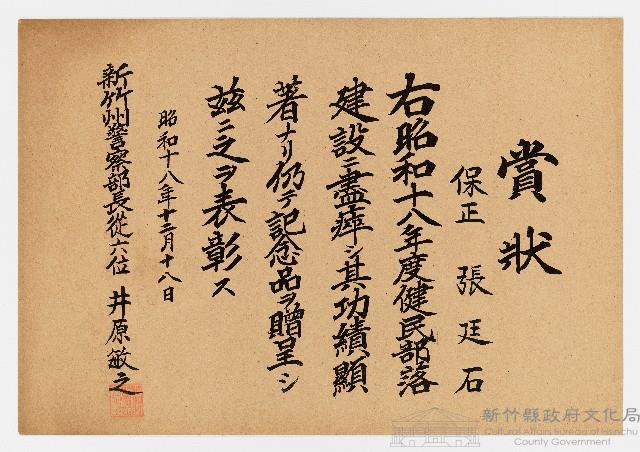 賞狀
保正 張廷石
右昭和十八年度健民部落
建設ニ盡瘁シ其功績顯
著ナリ仍テ記念品ヲ贈呈シ
茲ニ之ヲ表彰ス
昭和十八年十二月十八日
新竹州警察部長從六位 井原敏之
新竹縣政府文化局
Cultural Affairs Bureau of Hsinchu
County Government